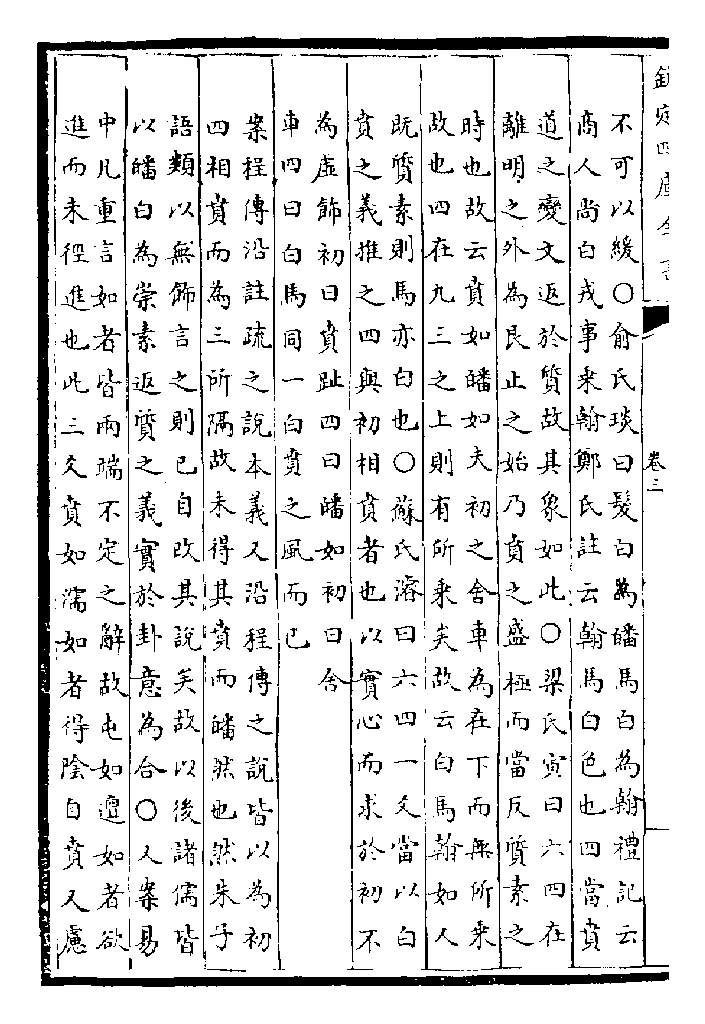 欽定四庫全書
卷三
不可以緩〇俞氏琰曰髮白為皤馬白為翰禮記云
商人尚白戎事乘翰鄭氏註云翰馬白色也四當賁
道之變文返於質故其象如此〇梁氏寅曰六四在
離明之外為艮止之始乃賁之盛極而當反質素之
時也故云賁如皤如夫初之舍車為在下而無所乘
故也四在九三之上則有所乘矣故云白馬翰如人
既質素則馬亦白也〇蘇氏濬曰六四一爻當以白
賁之義推之四與初相賁者也以實心而求於初不
為虛飾初曰賁趾四曰皤如初曰舍
車四曰白馬同一白賁之風而已
案程傳沿註疏之說本義又沿程傳之說皆以為初
四相賁而為三所隔故未得其賁而皤然也然朱子
語類以無飾言之則已自改其說矣故以後諸儒皆
以皤白為崇素返質之義實於卦意為合〇又案易
中凡重言如者皆兩端不定之辭故屯如邅如者欲
進而未徑進也此三爻賁如濡如者得陰自賁又慮